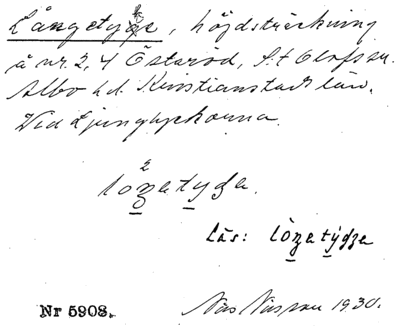 Långetyge, höjdsträckning
å nr. 2, 4 Östaröd, S:t Olofs sn.
Albo hd. Kristianstads län.
Vid Ljunglyckorna.
2
lòŋatyʤa.
Läs: lòŋatýʤa
Nr 5908. 1930.